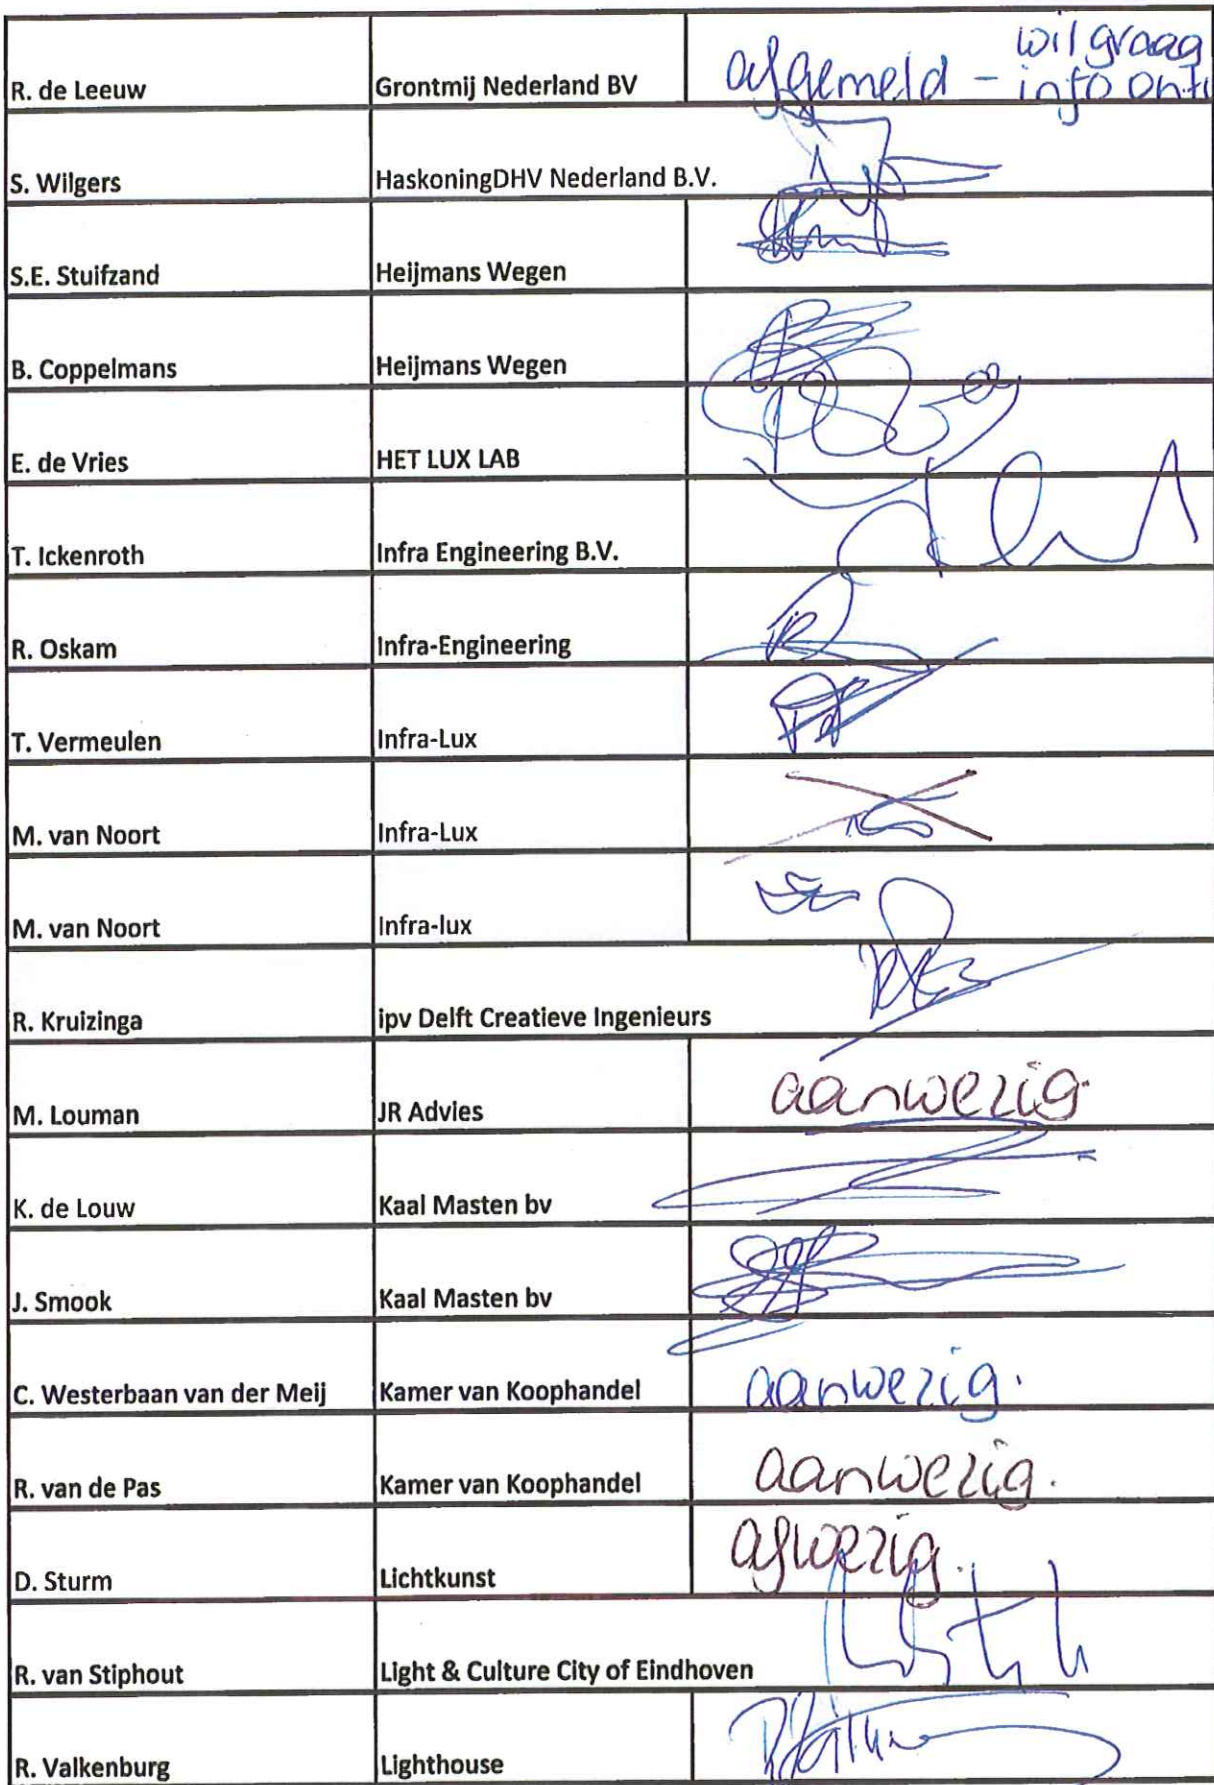 R. de Leeuw Grontmij Nederland BV afgemeld - wil graag
info
S. Wilgers HaskoningDHV Nederland B.V.
S.E. Stuifzand Heijmans Wegen
B. Coppelmans Heijmans Wegen
E. de Vries HET LUX LAB
T. Ickenroth Infra Engineering B.V.
R. Oskam Infra-Engineering
T. Vermeulen Infra-Lux
M. van Noort Infra-Lux
M. van Noort Infra-lux
R. Kruizinga ipv Delft Creatieve Ingenieurs
M. Louman JR Advies aanwezig.
K. de Louw Kaal Masten bv
J. Smook Kaal Masten bv
C. Westerbaan van der Meij Kamer van Koophandel aanwezig.
R. van de Pas Kamer van Koophandel aanwezig.
D. Sturm Lichtkunst afwezig.
R. van Stiphout Light & Culture City of Eindhoven
R. Valkenburg Lighthouse